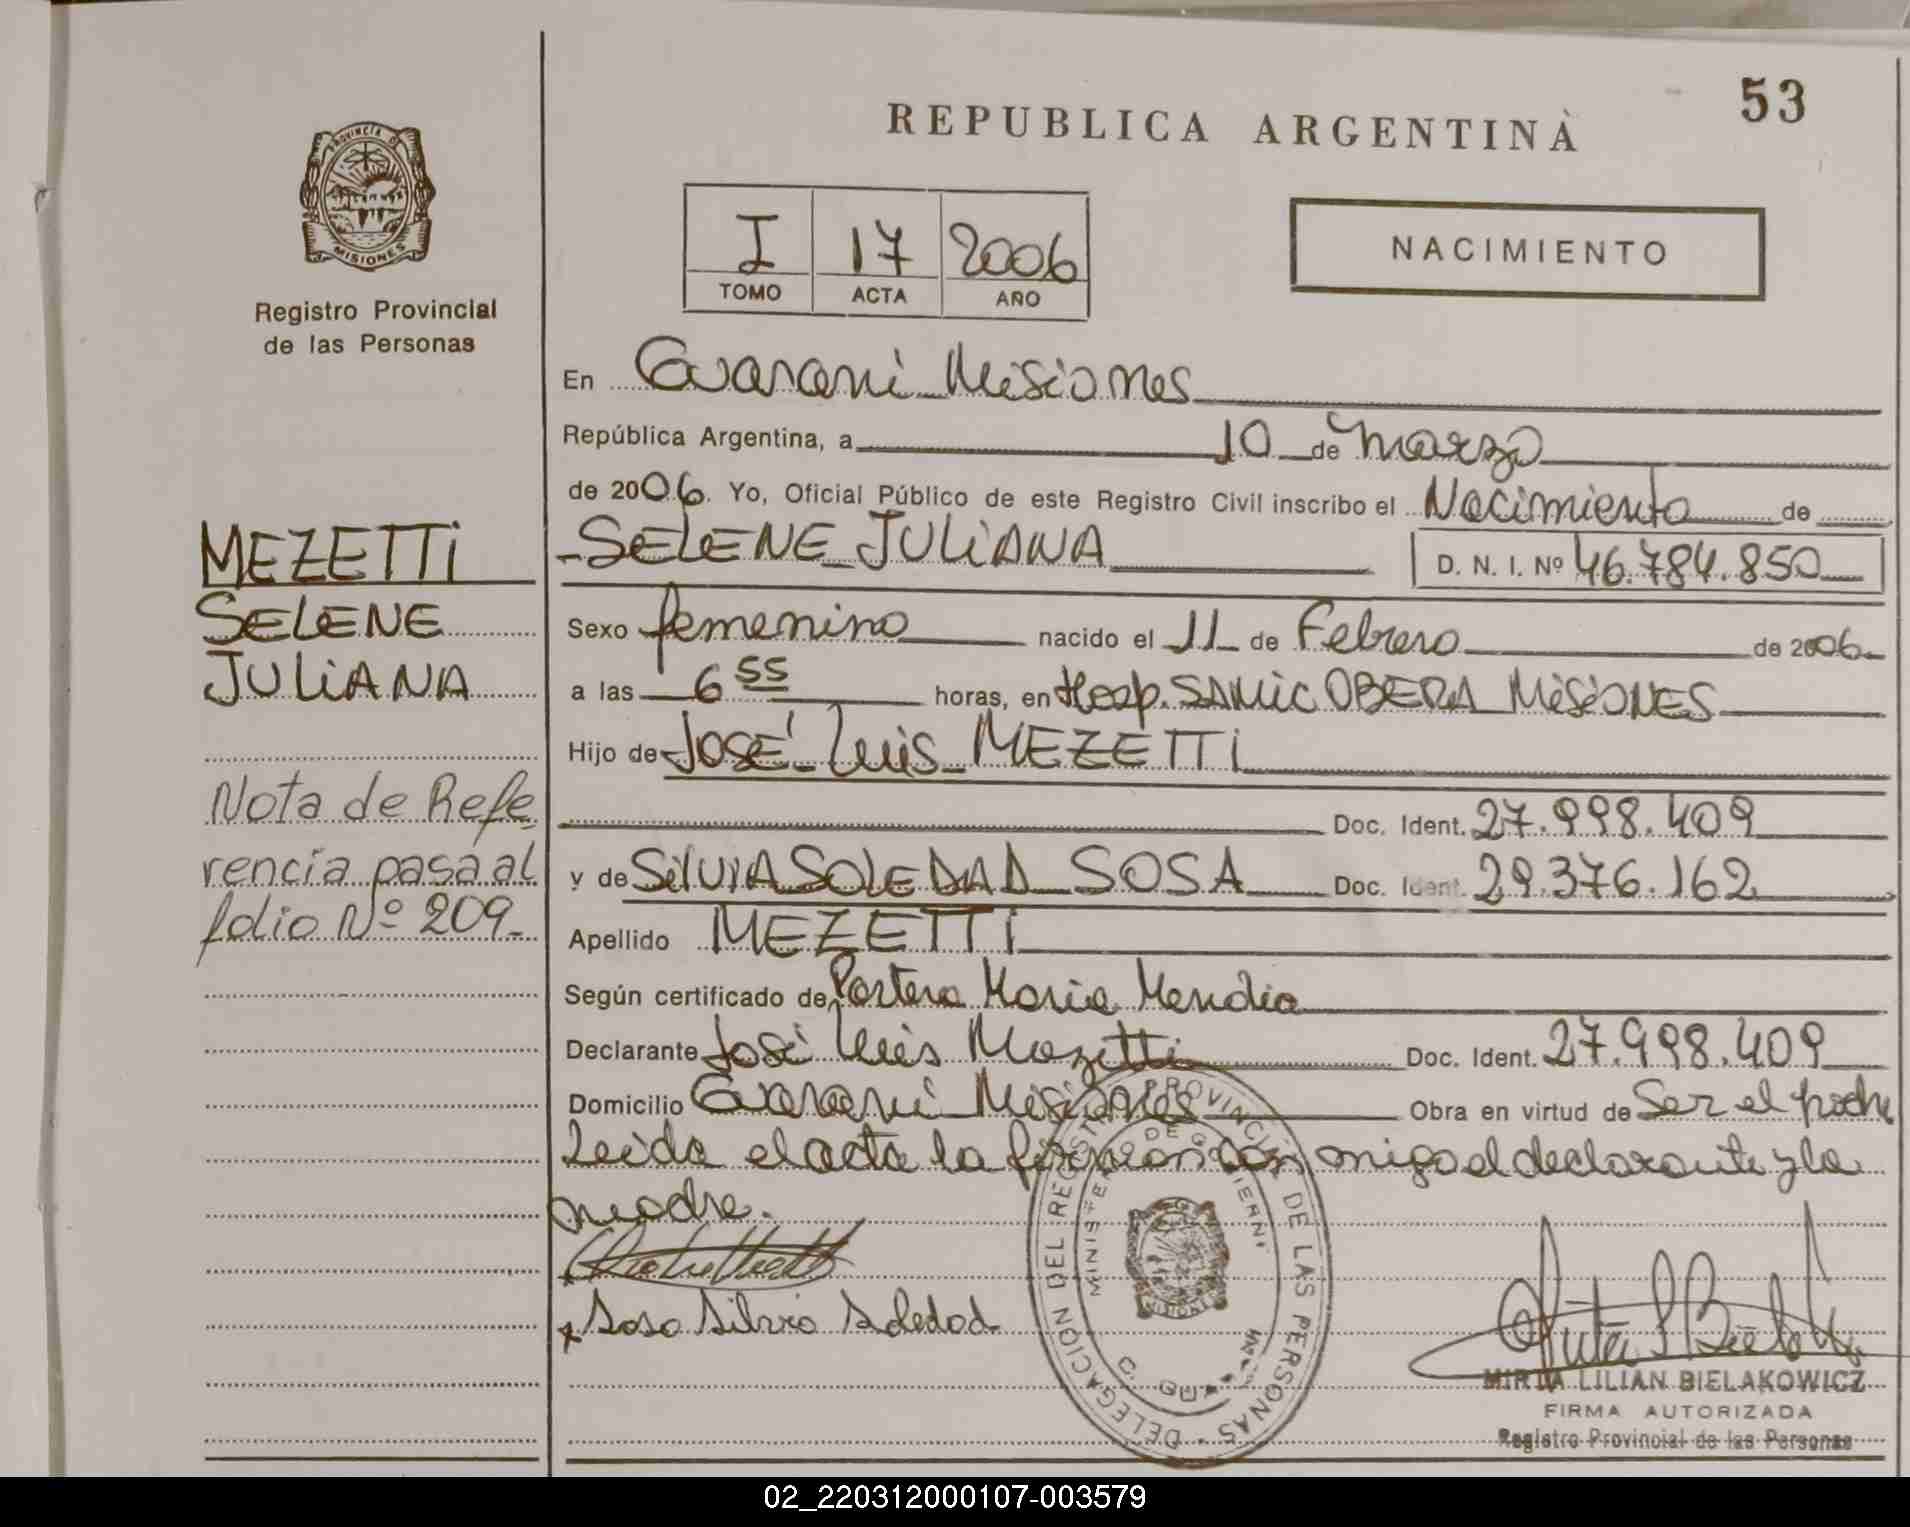 53
REPUBLICA ARGENTINA
PROVINCIA D
MISIONES
Registro Provincial
de las Personas
I 17 2006
TOMO ACTA AÑO
NACIMIENTO
En Guarani Misiones
República Argentina, a 10 de Marzo
de 2006. Yo, Oficial Público de este Registro Civil inscribo el Nacimiento de
SELENE JULIANA D. N. I. Nº 46.784.850
Sexo femenino nacido el 11 de Febrero de 2006
a las 6 55 horas, en Hosp. SAMIC OBERA MISIONES
Hijo de JOSÉ Luis MEZETTI
Doc. Ident. 27.998.409
y de SILVIA SOLEDAD SOSA Doc. Ident. 29.376.162
Apellido MEZETTI
Según certificado de Partera Maria Mendia
Declarante José Luis Mezetti Doc. Ident. 27.998.409
Domicilio Guarani Misiones Obra en virtud de Ser el padre
Leida el acta la firman con migo el declarante y la
madre.
Sosa Silvia Soledad
MEZETTI
SELENE
JULIANA
Nota de Refe
rencia pasa al
folio Nº 209
DELEGACION DEL REGISTRO PROVINCIAL DE LAS PERSONAS
MINISTERIO DE GOBIERNO
MIRTA LILIAN BIELAKOWICZ
FIRMA AUTORIZADA
Registro Provincial de las Personas
02_220312000107-003579